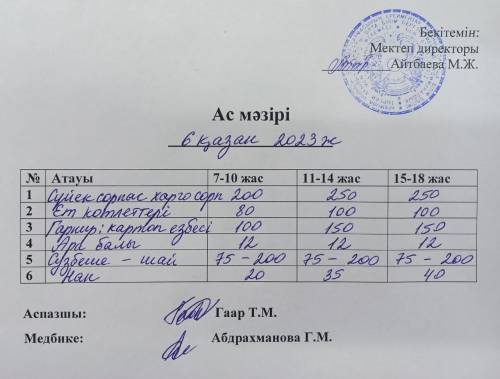 Бекітемін:
Мектеп директоры
Айтбаева М.Ж.
Ас мәзірі
6 қазан 2023 ж
№ Атауы 7-10 жас 11-14 жас 15-18 жас
1 Сүйек сорпас харчо сорп 200 250 250
2 Ет котлеттері 80 100 100
3 Гарнир: картоп езбесі 100 150 150
4 Ара балы 12 12 12
5 Сүзбеше - шай 75 - 200 75 - 200 75 - 200
6 Нан 20 35 40
Аспазшы: Гаар Т.М.
Медбике: Абдрахманова Г.М.